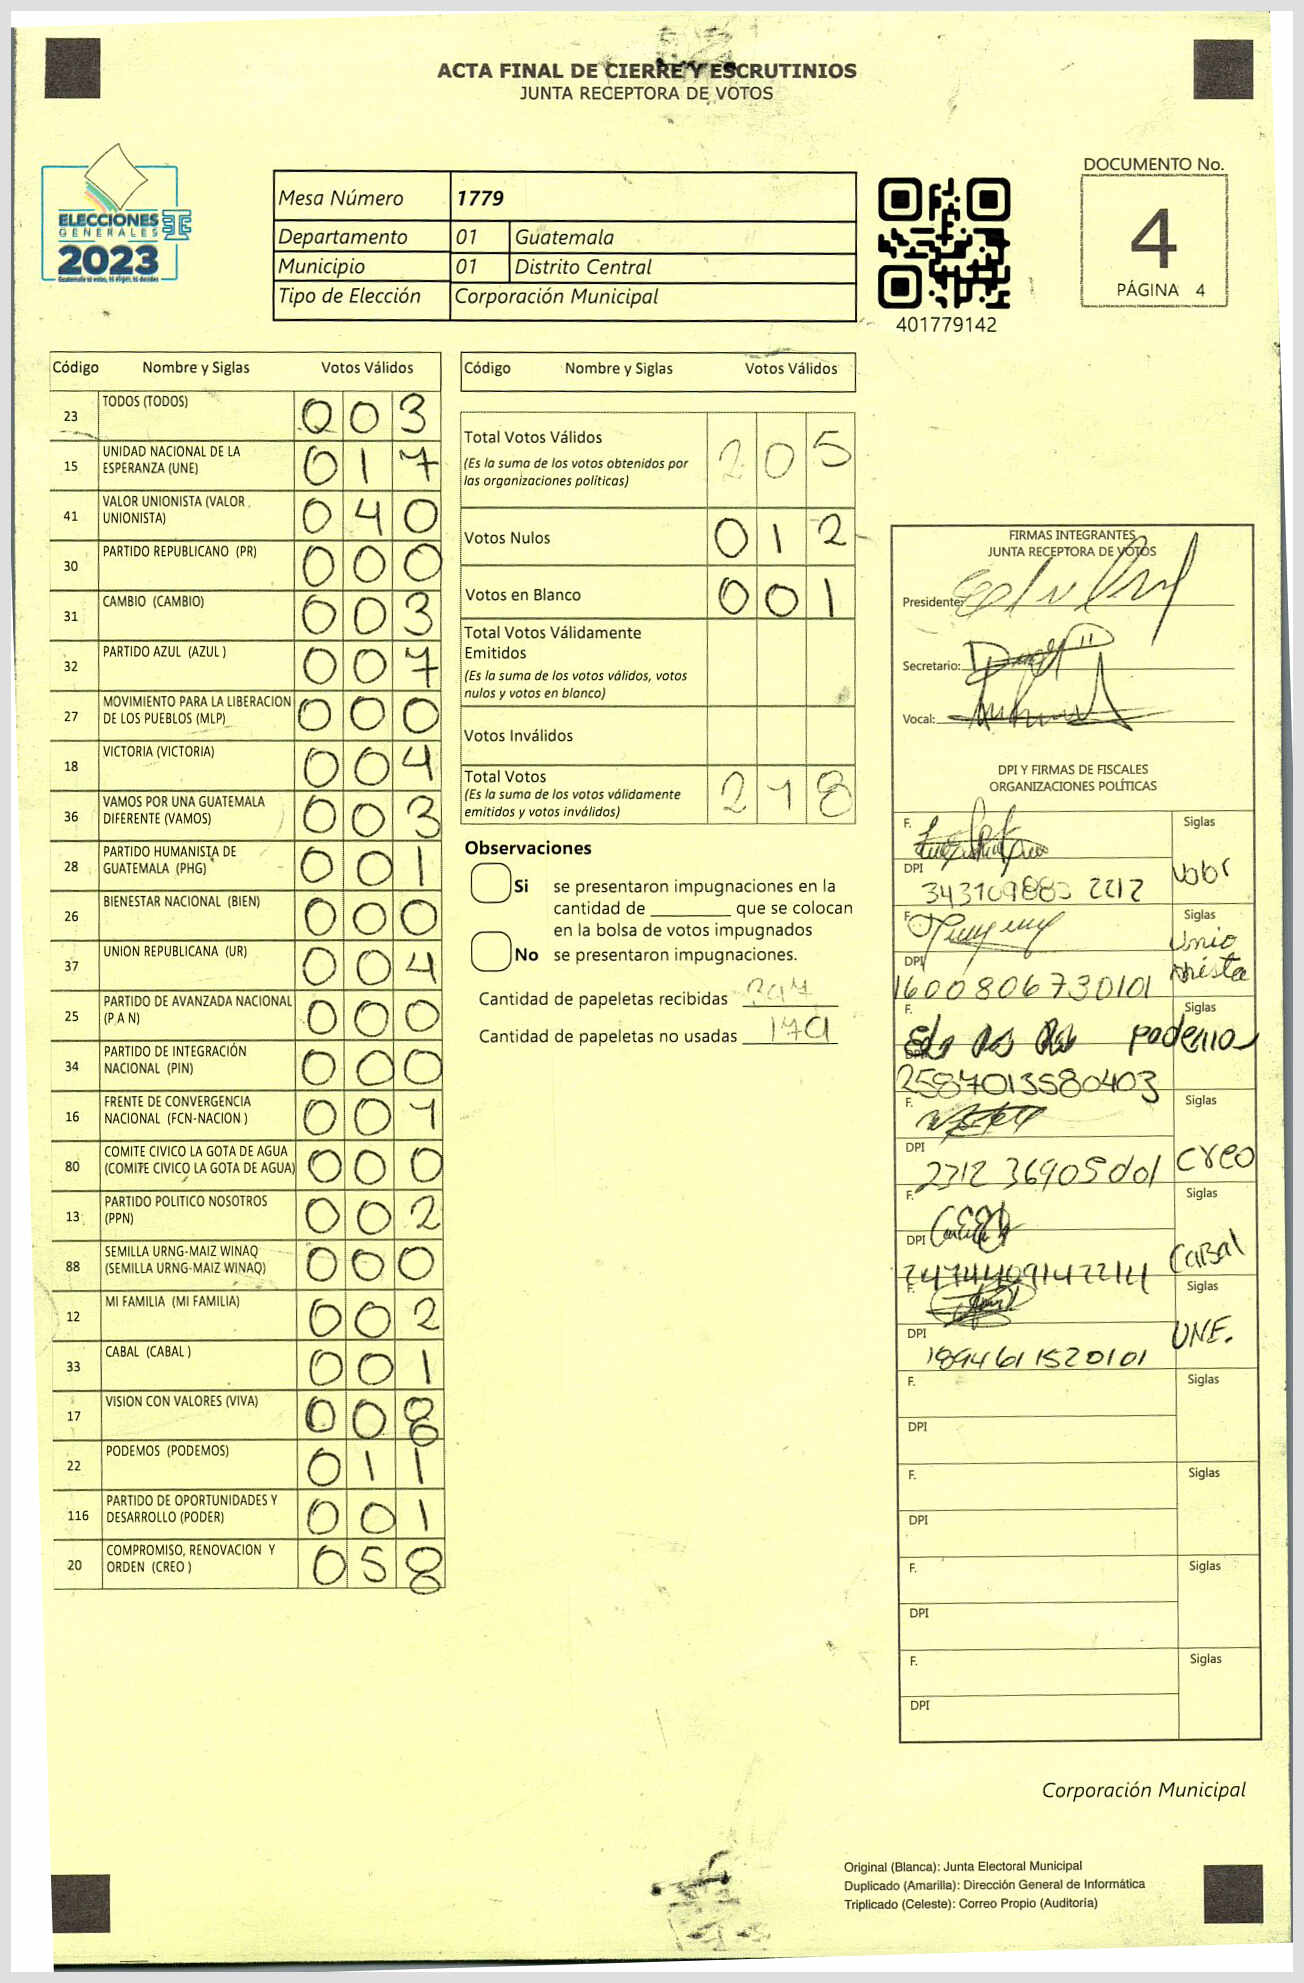 ACTA FINAL DE CIERRE Y ESCRUTINIOS
JUNTA RECEPTORA DE VOTOS
ELECCIONES
GENERALES
2023
Mesa Número 1779
Departamento 01 Guatemala
Municipio 01 Distrito Central
Tipo de Elección Corporación Municipal
401779142
DOCUMENTO No.
4
PÁGINA 4
Código Nombre y Siglas Votos Válidos
23 TODOS (TODOS) 0 0 3
15 UNIDAD NACIONAL DE LA ESPERANZA (UNE) 0 1 7
41 VALOR UNIONISTA (VALOR UNIONISTA) 0 4 0
30 PARTIDO REPUBLICANO (PR) 0 0 0
31 CAMBIO (CAMBIO) 0 0 3
32 PARTIDO AZUL (AZUL ) 0 0 7
27 MOVIMIENTO PARA LA LIBERACION DE LOS PUEBLOS (MLP) 0 0 0
18 VICTORIA (VICTORIA) 0 0 4
36 VAMOS POR UNA GUATEMALA DIFERENTE (VAMOS) 0 0 3
28 PARTIDO HUMANISTA DE GUATEMALA (PHG) 0 0 1
26 BIENESTAR NACIONAL (BIEN) 0 0 0
37 UNION REPUBLICANA (UR) 0 0 4
25 PARTIDO DE AVANZADA NACIONAL (P A N) 0 0 0
34 PARTIDO DE INTEGRACIÓN NACIONAL (PIN) 0 0 0
16 FRENTE DE CONVERGENCIA NACIONAL (FCN-NACION ) 0 0
80 COMITE CIVICO LA GOTA DE AGUA (COMITE CIVICO LA GOTA DE AGUA) 0 0 0
13 PARTIDO POLITICO NOSOTROS (PPN) 0 0 2
88 SEMILLA URNG-MAIZ WINAQ (SEMILLA URNG-MAIZ WINAQ) 0 0 0
12 MI FAMILIA (MI FAMILIA) 0 0 2
33 CABAL (CABAL ) 0 0 1
17 VISION CON VALORES (VIVA) 0 0 8
22 PODEMOS (PODEMOS) 0 1 1
116 PARTIDO DE OPORTUNIDADES Y DESARROLLO (PODER) 0 0 1
20 COMPROMISO, RENOVACION Y ORDEN (CREO ) 0 5 8
Código Nombre y Siglas Votos Válidos
Total Votos Válidos 2 0 5
(Es la suma de los votos obtenidos por
las organizaciones políticas)
Votos Nulos 0 1 2
Votos en Blanco 0 0 1
Total Votos Válidamente
Emitidos
(Es la suma de los votos válidos, votos
nulos y votos en blanco)
Votos Inválidos
Total Votos 2 1 8
(Es la suma de los votos válidamente
emitidos y votos inválidos)
Observaciones
Si se presentaron impugnaciones en la
cantidad de ________ que se colocan
en la bolsa de votos impugnados
No se presentaron impugnaciones.
Cantidad de papeletas recibidas
Cantidad de papeletas no usadas 179
FIRMAS INTEGRANTES
JUNTA RECEPTORA DE VOTOS
Presidente:
Secretario:
Vocal:
DPI Y FIRMAS DE FISCALES
ORGANIZACIONES POLÍTICAS
F. Siglas
DPI Valor
F. Siglas
Unionista
DPI 1600806730101
F. Siglas
podemos
DPI 2587013580403
F. Siglas
DPI Creo
F. Siglas
DPI CABAL
F. Siglas
DPI 1894611520101 UNE.
F. Siglas
DPI
F. Siglas
DPI
F. Siglas
DPI
F. Siglas
DPI
Corporación Municipal
Original (Blanca): Junta Electoral Municipal
Duplicado (Amarilla): Dirección General de Informática
Triplicado (Celeste): Correo Propio (Auditoría)